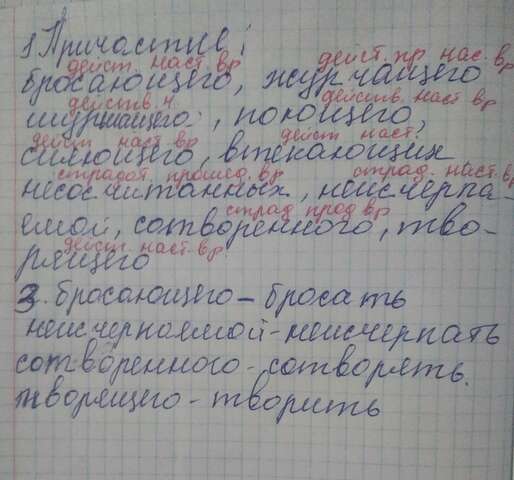 1 Причастие:
дейст. наст. вр дейст. пр. нас. вр
бросающего, журчащего
действ. н. действ. наст вр
шуршащего, поющего,
дейст наст вр дейст наст.
сияющего, втекающих
страдат. прошед. вр страд. наст. вр
несосчитанных, неисчерпа-
страд прод вр
емой, сотворенного, тво-
дейст. наст. вр.
рящего
3. бросающего – бросать
неисчерпаемой - неисчерпать
сотворенного - сотворять.
творящего - творить